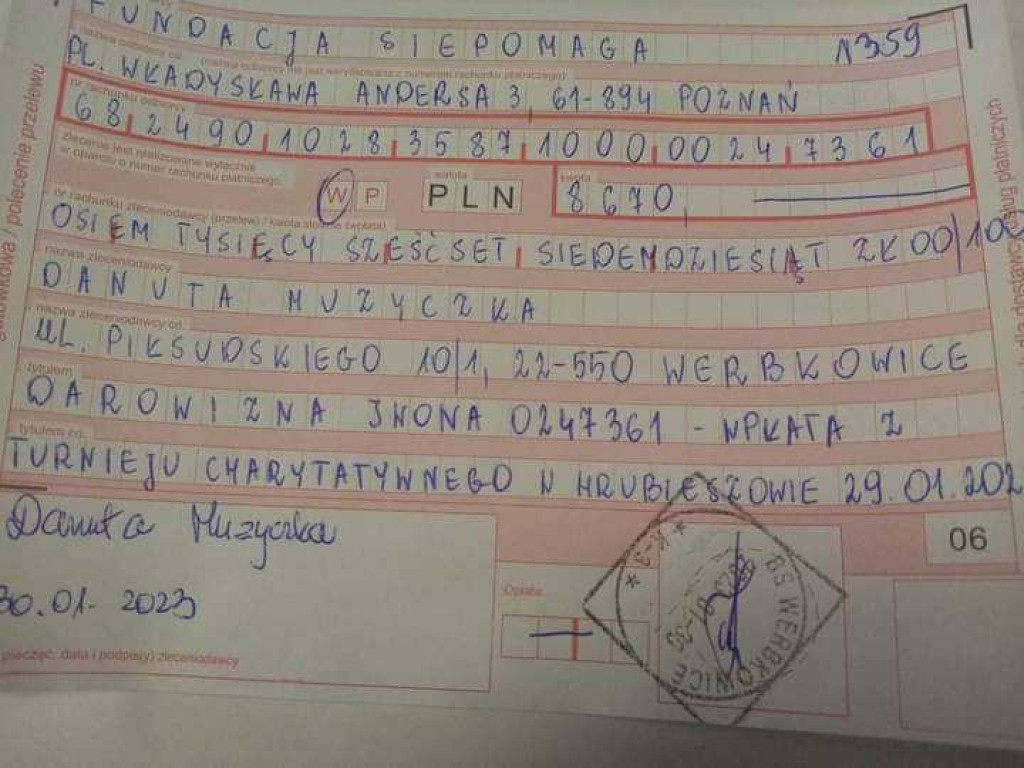 FUNDACJA SIEPOMAGA N359
nazwa odbiorcy cd. (nazwa odbiorcy nie jest weryfikowana z numerem rachunku płatniczego)
PL. WŁADYSŁAWA ANDERSA 3, 61-894 POZNAŃ
nr rachunku odbiorcy
68 2490 1028 3587 1000 0024 7361
zlecenie jest realizowane wyłącznie
w oparciu o numer rachunku płatniczego
W P
waluta
PLN
kwota
8670,
nr rachunku zleceniodawcy (przelew) / kwota słownie (wpłata)
OSIEM TYSIĘCY SZEŚĆSET SIEDEMDZIESIĄT ZŁ 00/100
nazwa zleceniodawcy
DANUTA MUZYCZKA
nazwa zleceniodawcy cd.
UL. PIŁSUDSKIEGO 10/1, 22-550 WERBKOWICE
tytułem
DAROWIZNA IWONA 0247361 - WPŁATA Z
tytułem cd.
TURNIEJU CHARYTATYWNEGO W HRUBIESZOWIE 29.01.202
Danuta Muzyczka
30.01-2023
pieczęć, data i podpis(y) zleceniodawcy
Opłata
06
* K-3 *
SB WERBKOWICE
polecenie przelewu
dla dostawcy usług płatniczych